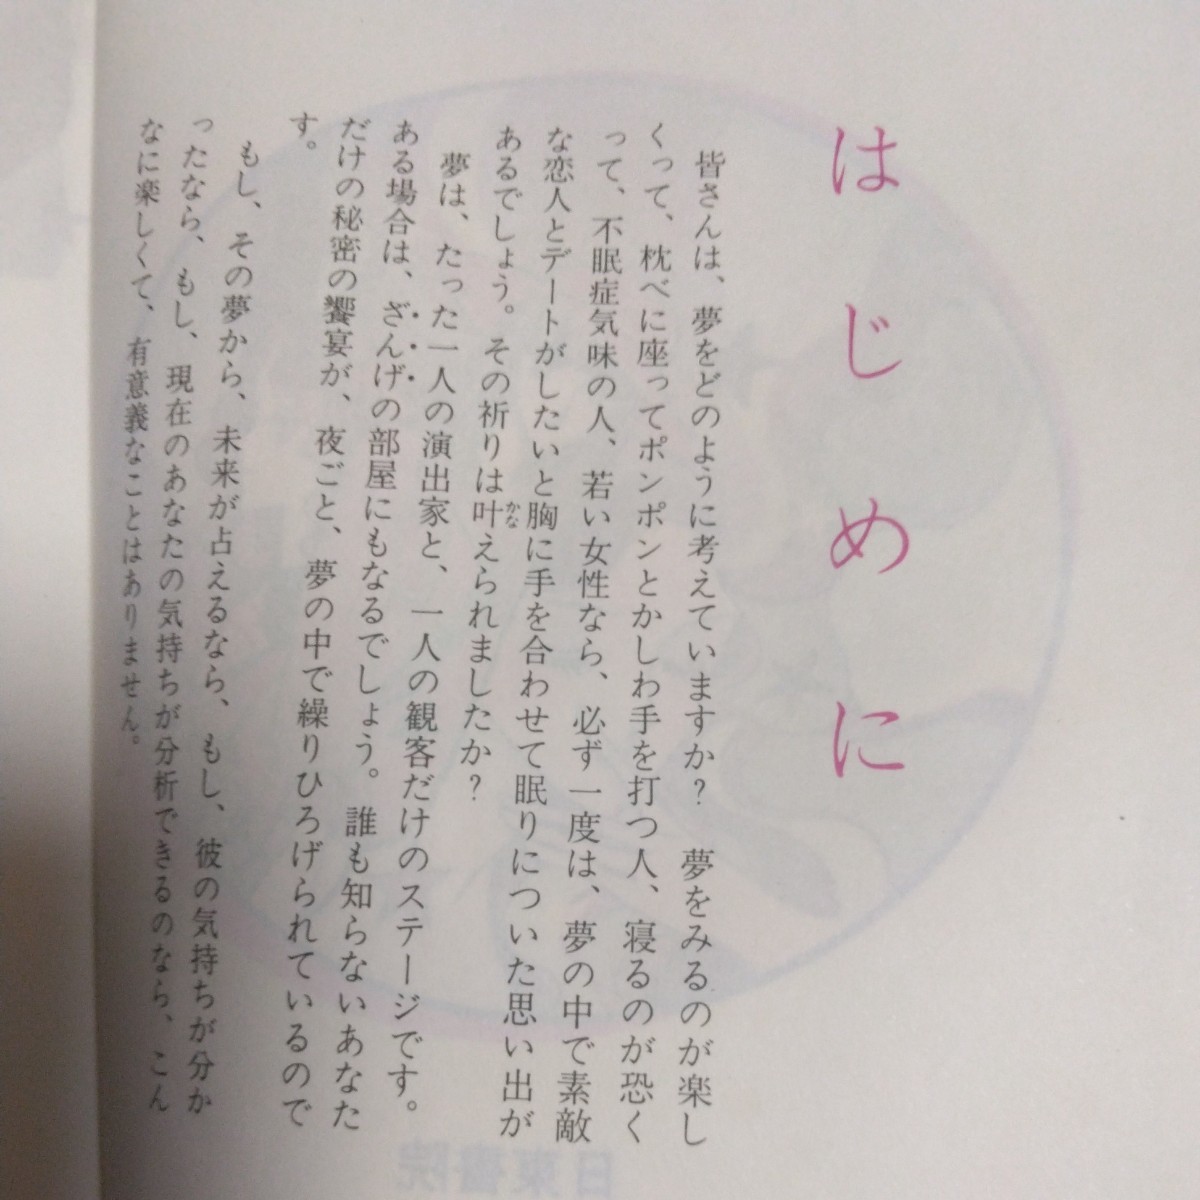 はじめに
皆さんは、夢をどのように考えていますか？　夢をみるのが楽し
くって、枕べに座ってポンポンとかしわ手を打つ人、寝るのが恐く
って、不眠症気味の人、若い女性なら、必ず一度は、夢の中で素敵
な恋人とデートがしたいと胸に手を合わせて眠りについた思い出が
あるでしょう。その祈りは叶えられましたか？
かな
夢は、たった一人の演出家と、一人の観客だけのステージです。
ある場合は、ざんげの部屋にもなるでしょう。誰も知らないあなた
だけの秘密の饗宴が、夜ごと、夢の中で繰りひろげられているので
す。
もし、その夢から、未来が占えるなら、もし、彼の気持ちが分か
ったなら、もし、現在のあなたの気持ちが分析できるのなら、こん
なに楽しくて、有意義なことはありません。
日東書院